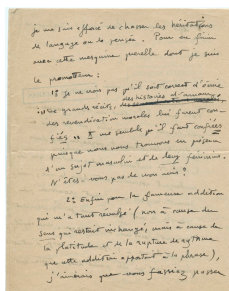 je me suis efforcé de chasser les hésitations
de langage ou de pensée. Pour en finir
avec cette mesquine querelle dont je suis
le promoteur :
1° je ne crois pas qu'il soit correct d'écrire
: "Des grands récits, des histoires d'amour,
des revendications morales lui furent con-
fiés". Il me semble qu'il faut confiées
puisque nous nous trouvons en présence
d'un sujet masculin et de leur féminins.
N'êtes-vous pas de mon avis ?
2° Enfin pour la fameuse addition
qui m'a tant remué (non à cause du
sens qui restait inchangé, mais à cause de
la platitude et de la rupture de rythme
que cette addition apportait à la phrase),
j'aimerais que vous fassiez passer